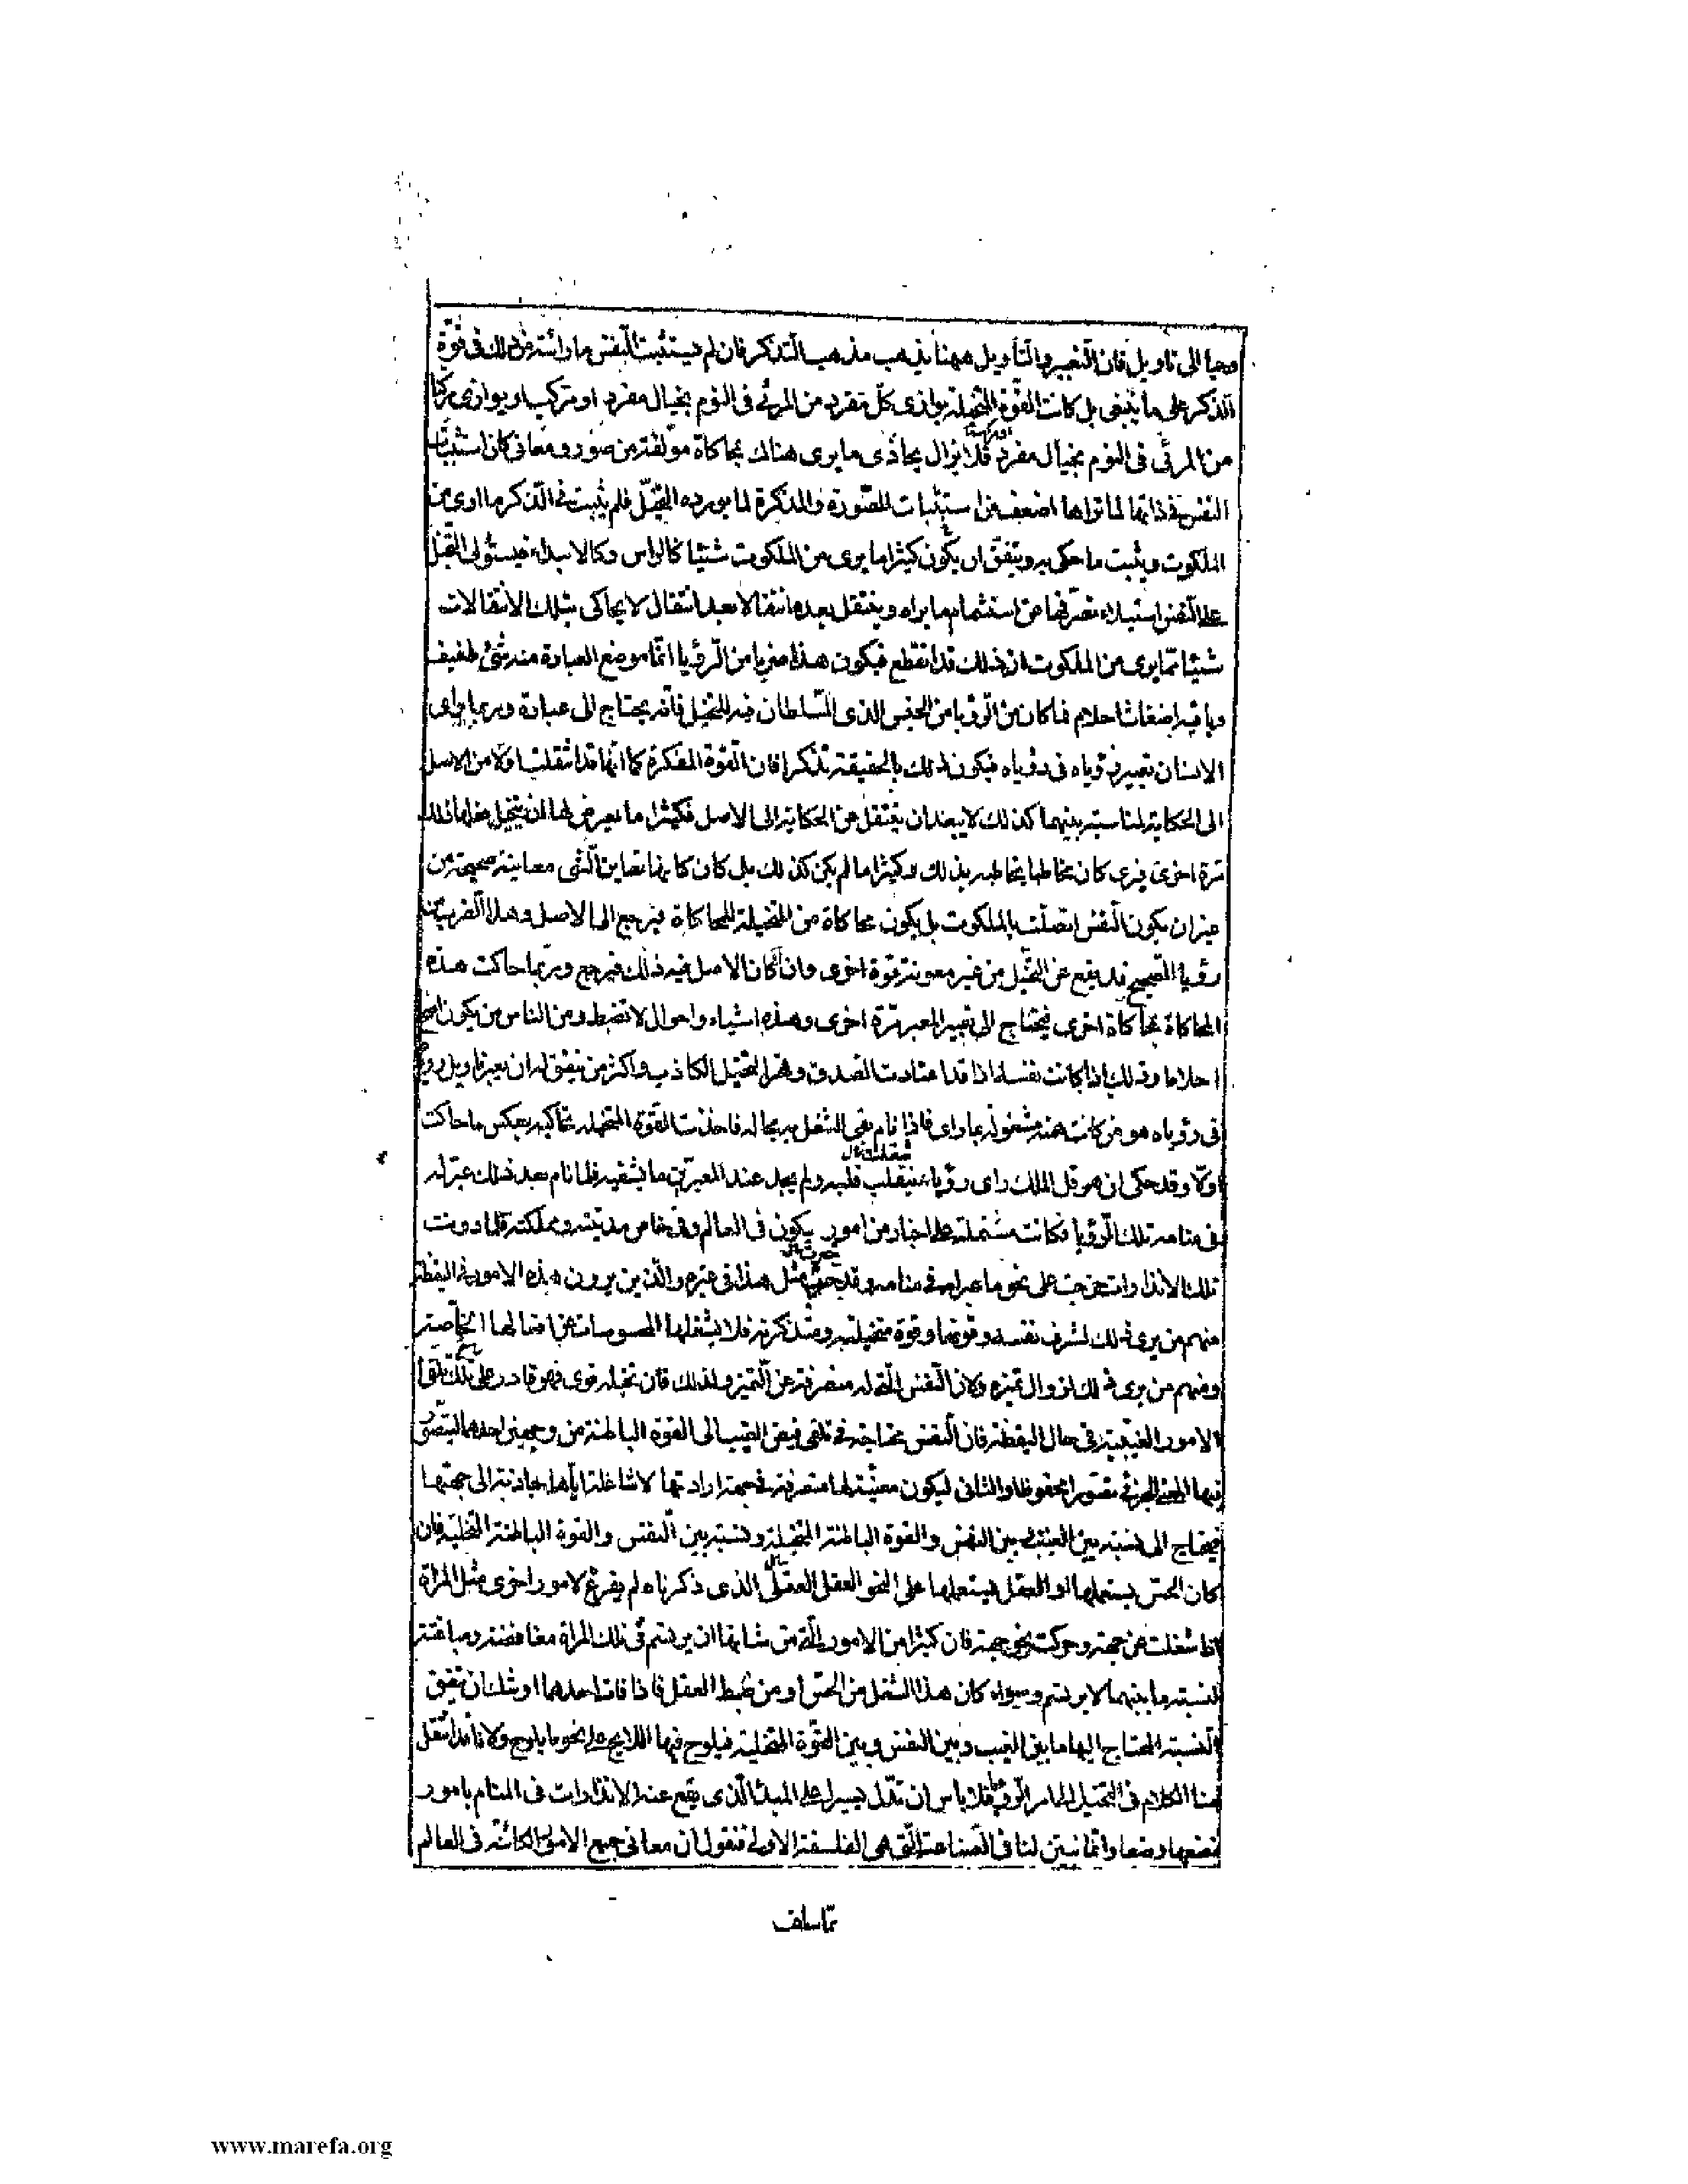 وحيا الى تاويل فان التعبير والتأويل ههنا يذهب مذهب التذكر فان لم يستثبت النفس ما راته من ذلك فى قوة
الذكر على ما ينبغى بل كانت القوة المتخيلة يوازى كل مفرد من المرئى فى النوم بخيال مفرد او مركب او يوازى مركبا
من المرئى فى النوم بخيال مفرد فلا يزال يحاذى ما يرى هناك بمحاكاة مؤلفة من صور ومعانى كان استثبات
النفس فى ذاتها لما تراها اضعف من استثبات المصورة والمذكرة لما يورده التخيل فلم يثبت فى التذكر ما ارى من
الملكوت ويثبت ما حكى به ويتفق ان يكون كثيرا ما يرى من الملكوت شيئا كالراس وكالابتداء فيستولى التخيل
على النفس استيلاء يصرفها عن استتمام ما يراه وينتقل بعده انتقالا بعد انتقال لا يحاكى بتلك الانتقالات
شيئا مما يرى من الملكوت اذ ذلك قد انقطع فيكون هذا ضربا من الرؤيا انما موضع العبارة منه شئ طفيف
وباقيه اضغاث احلام فما كان من الرؤيا من الجنس الذى السلطان فيه للتخيل فانه يحتاج الى عبارة وربما راى
الانسان تعبير رؤياه فى رؤياه فيكون ذلك بالحقيقة تذكرا فان القوة المفكرة كما انها قد انتقلت اولا من الاصل
الى الحكاية لمناسبة بينهما كذلك لا يبعد ان ينتقل عن الحكاية الى الاصل فكثيرا ما يعرض لها ان يتخيل فعلها ذلك
مرة اخرى فيرى كان مخاطبا يخاطبه بذلك وكثيرا ما لم يكن كذلك بل كان كانها تعاين الشى معاينة صحيحة من
غير ان يكون النفس اتصلت بالملكوت بل يكون محاكاة من المتخيلة للمحاكاة فيرجع الى الاصل وهذا الضرب من
رؤيا الصحيح قد يقع عن التخيل من غير معونة قوة اخرى وان كان الاصل فيه ذلك فيرجع وربما حاكت هذه
المحاكاة بمحاكاة اخرى فيحتاج الى تعبير المعبر مرة اخرى وهذه اشياء واحوال لا تضبط ومن الناس من يكون اصح
احلاما وذلك اذا كانت نفسه اذا قد اعتادت الصدق وقهر التخيل الكاذب واكثر من يتفق له ان يعبر تاويل رؤياه
فى رؤياه هو من كانت همته مشغولة بما راى فاذا نام بقى الشغل به بحاله فاخذت القوة المتخيلة تحاكيه بعكس ما حاكت
اولا وقد حكى ان هرقل الملك راى رؤيا فينقلب قلبه ولم يجد عند المعبرين ما يشفيه فلما نام بعد ذلك عبر له
فى منامه تلك الرؤيا فكانت مشتملة على اخبار من امور يكون فى العالم وفى خاص مدينته ومملكته فلما دونت
تلك الانذارات خرجت على نحو ما عبر له فى منامه وقد جرب مثل هذا فى غيره والذين يرون هذه الامور فى اليقظة
منهم من يرى ذلك لشرف نفسه وقوتها وقوة متخيلته ومتذكرته فلا يشغلها المحسوسات عن افعالها الخاصة
ومنهم من يرى ذلك لزوال تميزه ولان النفس التى له منصرفة عن التميز ولذلك فان تخيله قوى فهو قادر على تلقى
الامور الغيبية فى حال اليقظة فان النفس محتاجة فى تلقى فيض الغيب الى القوة الباطنة من وجهين احدهما ليتصور
فيها المعنى الجزئى تصورا محفوظا والثانى ليكون معينة لها متصرفة فى جهة ارادتها لا شاغلة اياها جاذبة الى جهتها
فيحتاج الى نسبة بين الغيب وبين النفس والقوة الباطنة المتخيلة ونسبة بين النفس والقوة الباطنة المتخيلة فان
كان الحس يستعملها او العقل يستعملها على النحو العقلى الذى ذكرناه لم يفرغ لامور اخرى مثل المراة
اذا شغلت عن جهة وحركت نحو جهة فان كثيرا من الامور التى من شانها ان يرتسم فى تلك المراة مغافصة ومباغتة
لنسبة ما بينهما لا يرتسم وسواء كان هذا الشغل من الحس او من ضبط العقل فاذا فات احدهما اوشك ان يتفق
النسبة المحتاج اليها ما بين الغيب وبين النفس وبين القوة المتخيلة فيلوح فيها اللايح على نحو ما يلوح ولانا قد انتقل
بنا الكلام فى التخيل الى امر الرؤيا فلا باس ان ندل يسيرا على المبدأ الذى يقع عنه الانذارات فى المنام بامور
نضعها وضعا وانما تبين لنا فى الصناعة التى هى الفلسفة الاولى فنقول ان معانى جميع الامور الكائنة فى العالم
مما سلف
www.marefa.org